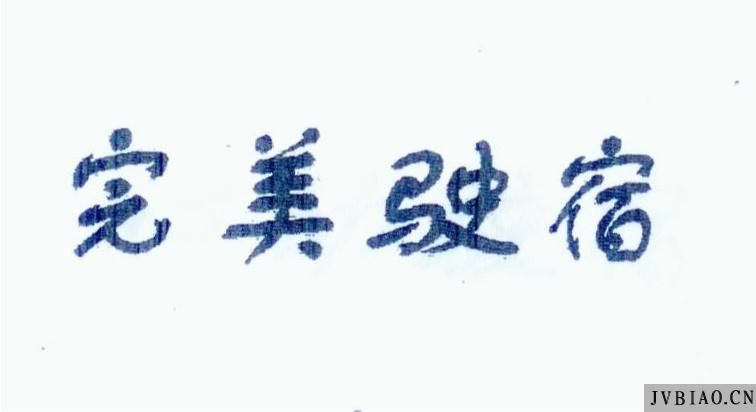 完美驶宿
JVBIAO.CN